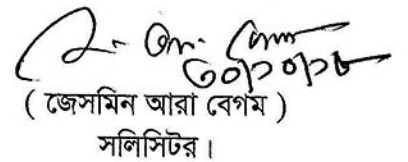 ৩০/১০/১৮
( জেসমিন আরা বেগম )
সলিসিটর।